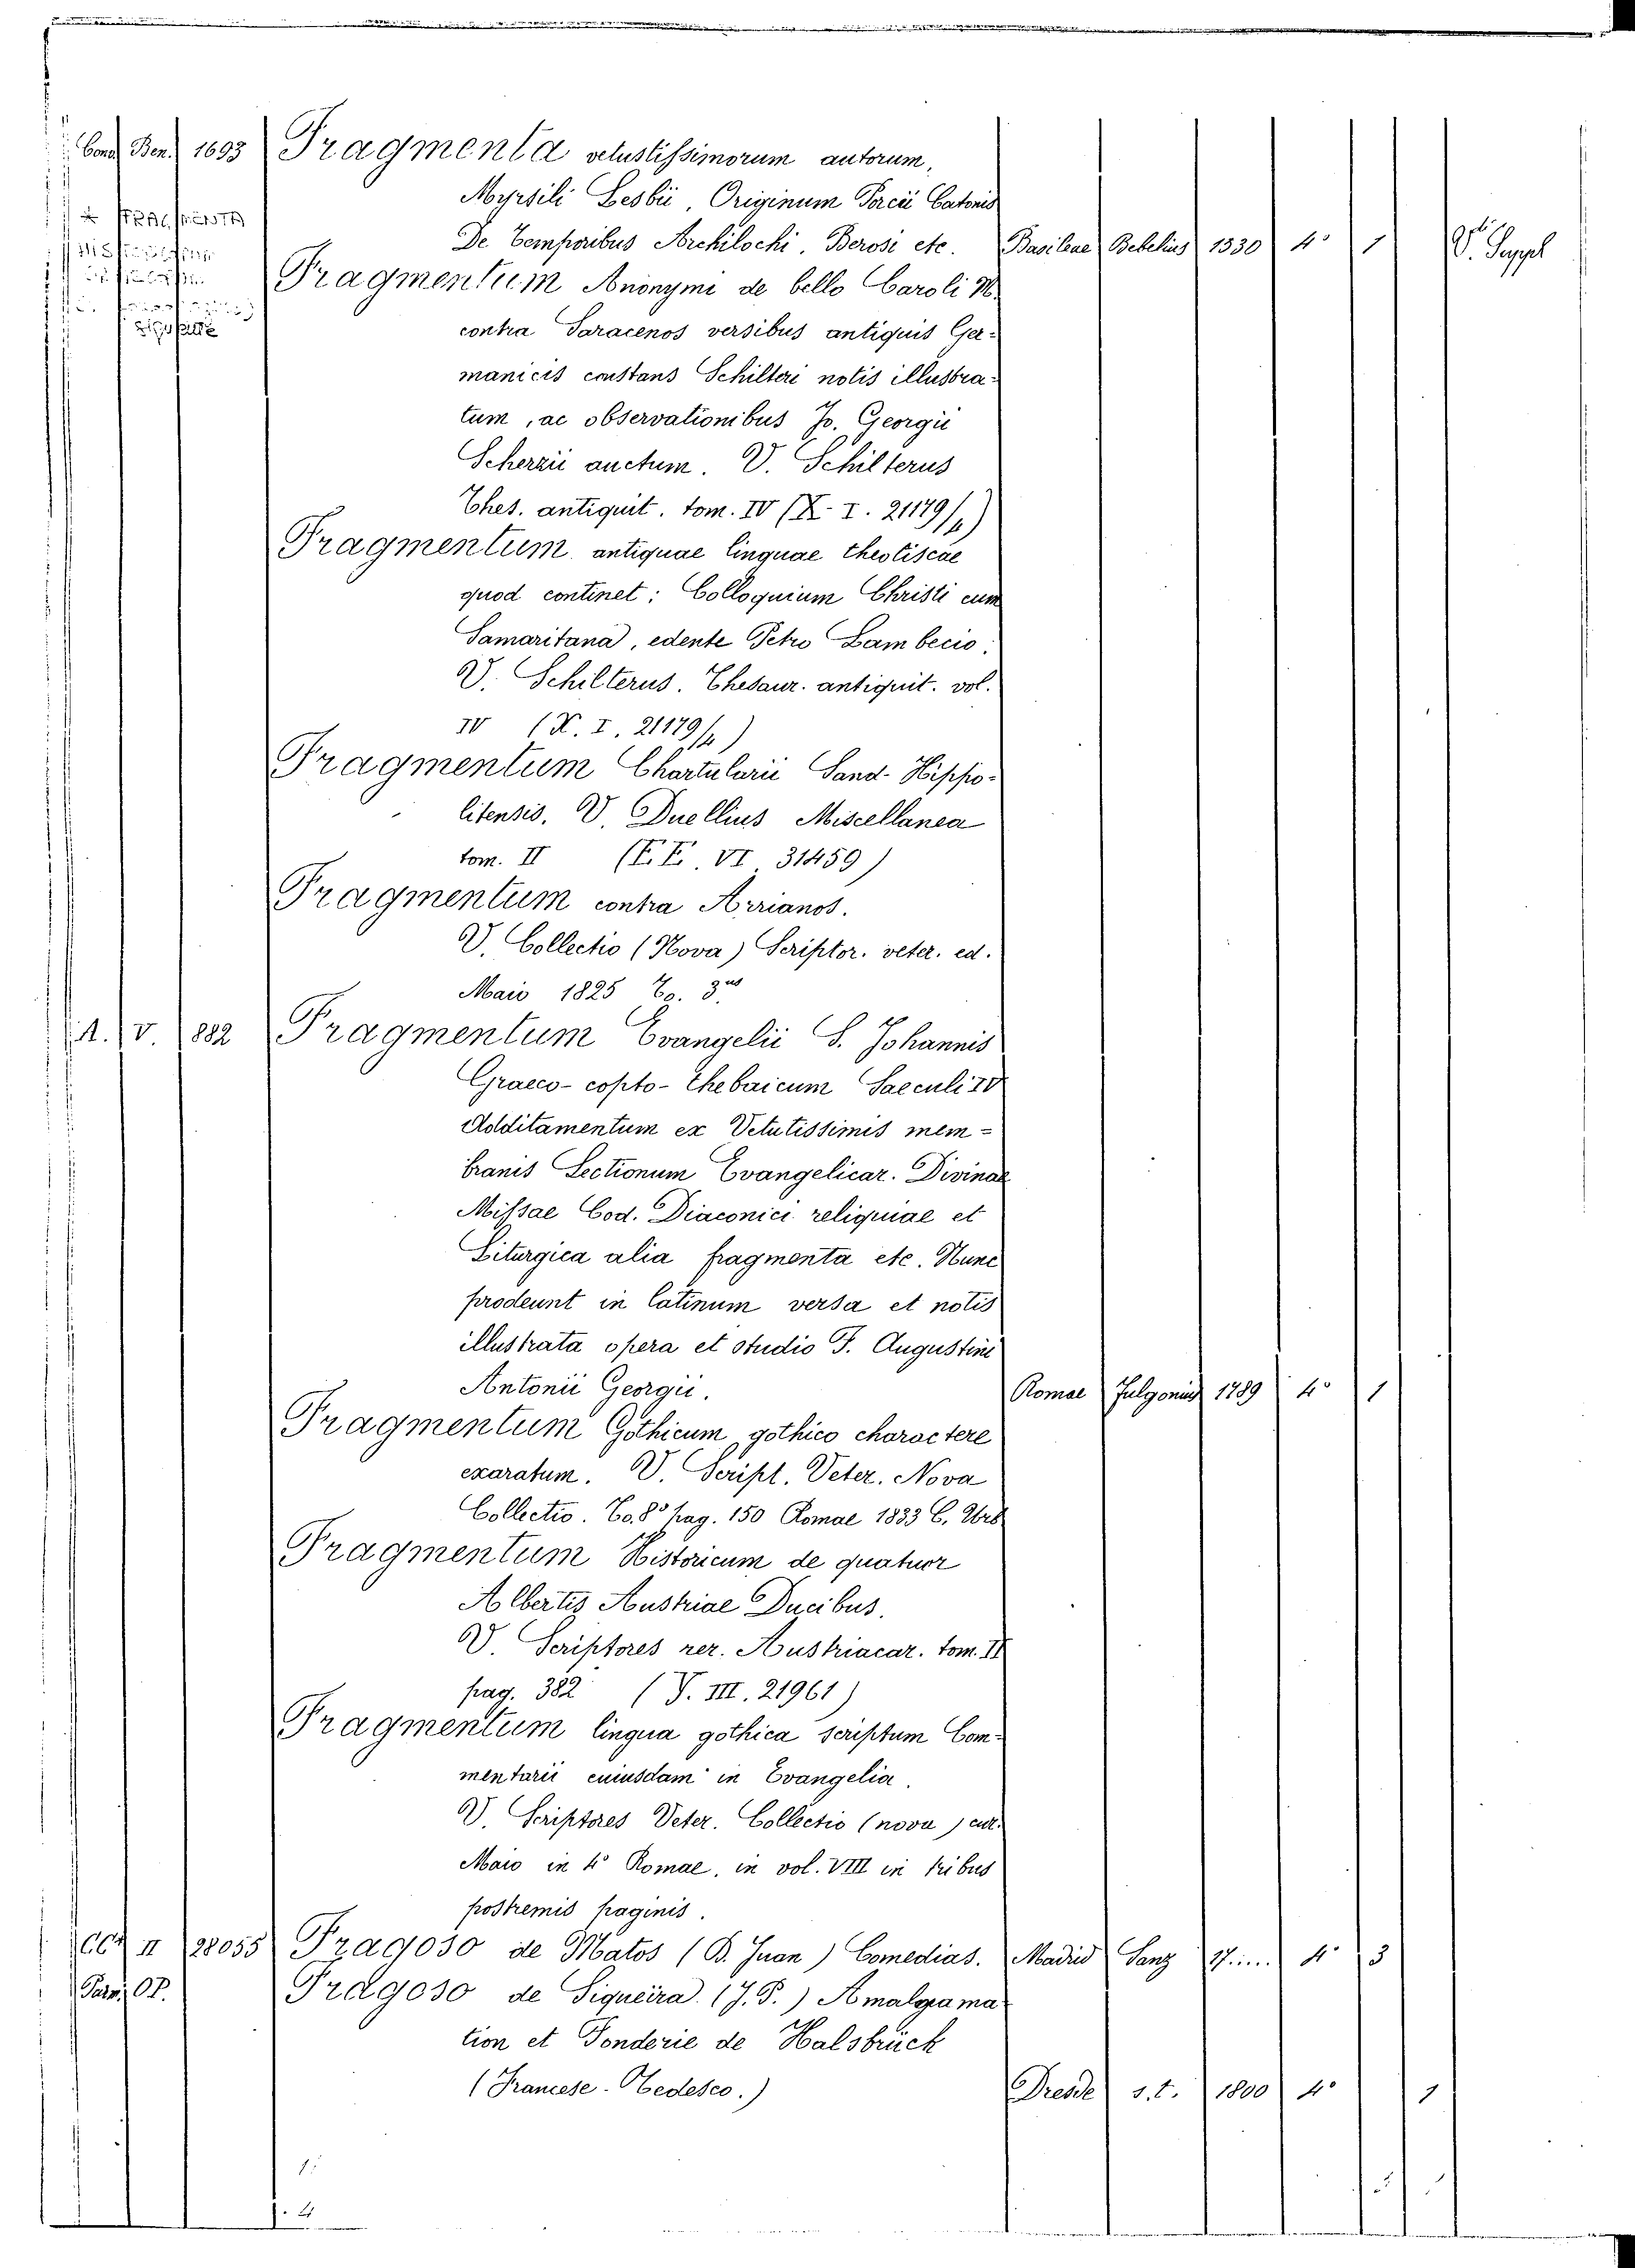 Cons. Ben. 1693 Fragmenta vetustissimorum autorum,
Myrsili Lesbii, Originum Porcii Catonis
De temporibus Archilochi, Berosi etc. Basileae Bebelius 1530 4° 1 V. Suppl
Fragmentum Anonymi de bello Caroli M.
contra Saracenos versibus antiquis Ger-
manicis constans Schilteri notis illustra-
tum, ac observationibus Jo. Georgii
Scherzii auctum. V. Schilterus
Thes. antiquit. tom. IV (X. I. 21179/4)
Fragmentum antiquae linguae theotiscae
quod continet: Colloquium Christi cum
Samaritana, edente Petro Lambecio.
V. Schilterus. Thesaur. antiquit. vol.
IV (X. I. 21179/4)
Fragmentum Chartularii Sand-Hippo-
litensis. V. Duellius Miscellanea
tom. II (F. F. VI 31459)
Fragmentum contra Arrianos.
V. Collectio (Nova) Scriptor. veter. ed.
Maio 1825 To. 3us
A. V. 882 Fragmentum Evangelii S. Johannis
Graeco-copto-thebaicum Saeculi IV
Additamentum ex Vetutissimis mem-
branis Lectionum Evangelicar. Divinae
Missae Cod. Diaconici reliquiae et
Liturgica alia fragmenta etc. Nunc
prodeunt in latinum versa et notis
illustrata opera et studio F. Augustini
Antonii Georgii. Romae Fulgonius 1789 4° 1
Fragmentum Gothicum gothico charactere
exaratum. V. Script. Veter. Nova
Collectio. To. 8° pag. 150 Romae 1833 C. Urb
Fragmentum Historicum de quatuor
Albertis Austriae Ducibus.
V. Scriptores rer. Austriacar. tom. II
pag. 382 (V. III. 21961)
Fragmentum lingua gothica scriptum Com-
mentarii cuiusdam in Evangelia.
V. Scriptores Veter. Collectio (nova) cur.
Maio in 4° Romae, in vol. VIII in tribus
postremis paginis.
CC4 II 28055 Fragoso de Matos (B. Juan) Comedias. Madrid Sanz 4° 3
Fragoso de Siqueira (J. P.) Amalgama-
tion et Fonderie de Halsbrück
(Francese-Tedesco.) Dresde s.t. 1800 4° 1